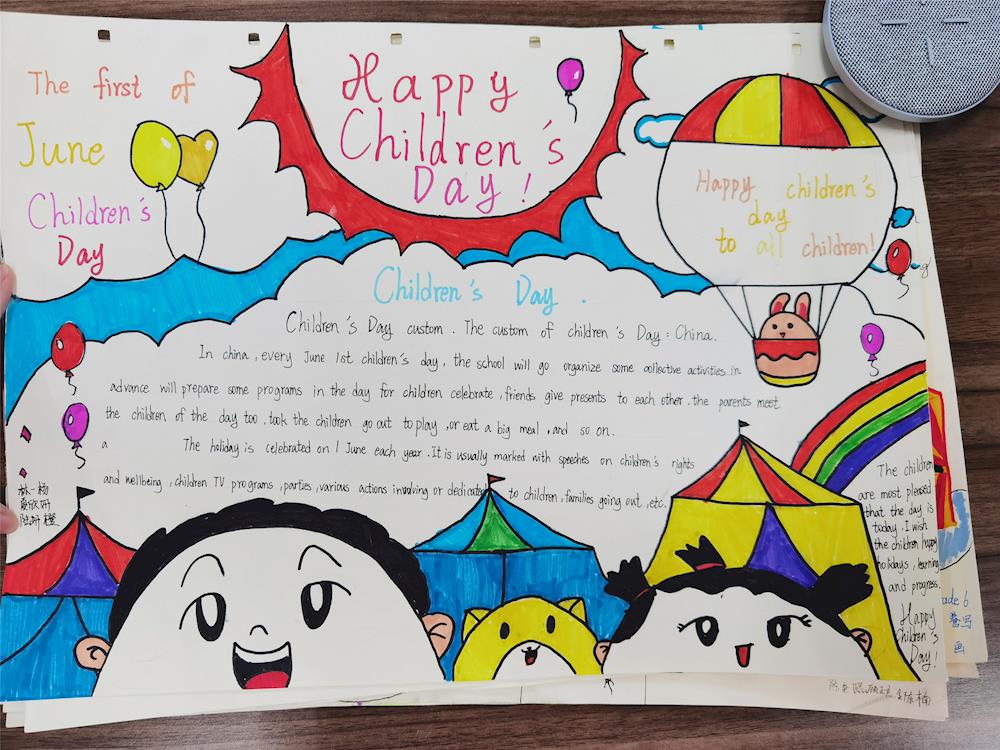 The first of
June
Children's
Day
Happy
Children's
Day!
Happy children's
day
to all children!
Children's Day.
Children's Day custom. The custom of children's Day: China.
In china, every June 1st children's day, the school will go organize some collective activities.in
advance will prepare some programs in the day for children celebrate, friends give presents to each other. the parents meet
the children of the day too. took the children go out to play, or eat a big meal, and so on.
a The holiday is celebrated on 1 June each year. It is usually marked with speeches on children's rights
and wellbeing, children TV programs, parties, various actions involving or dedicated to children, families going out, etc.
The children
are most pleased
that the day is
today. I wish
the children happy
holidays, learning
and progress.
Happy
Children's
Day!
ade 6
画